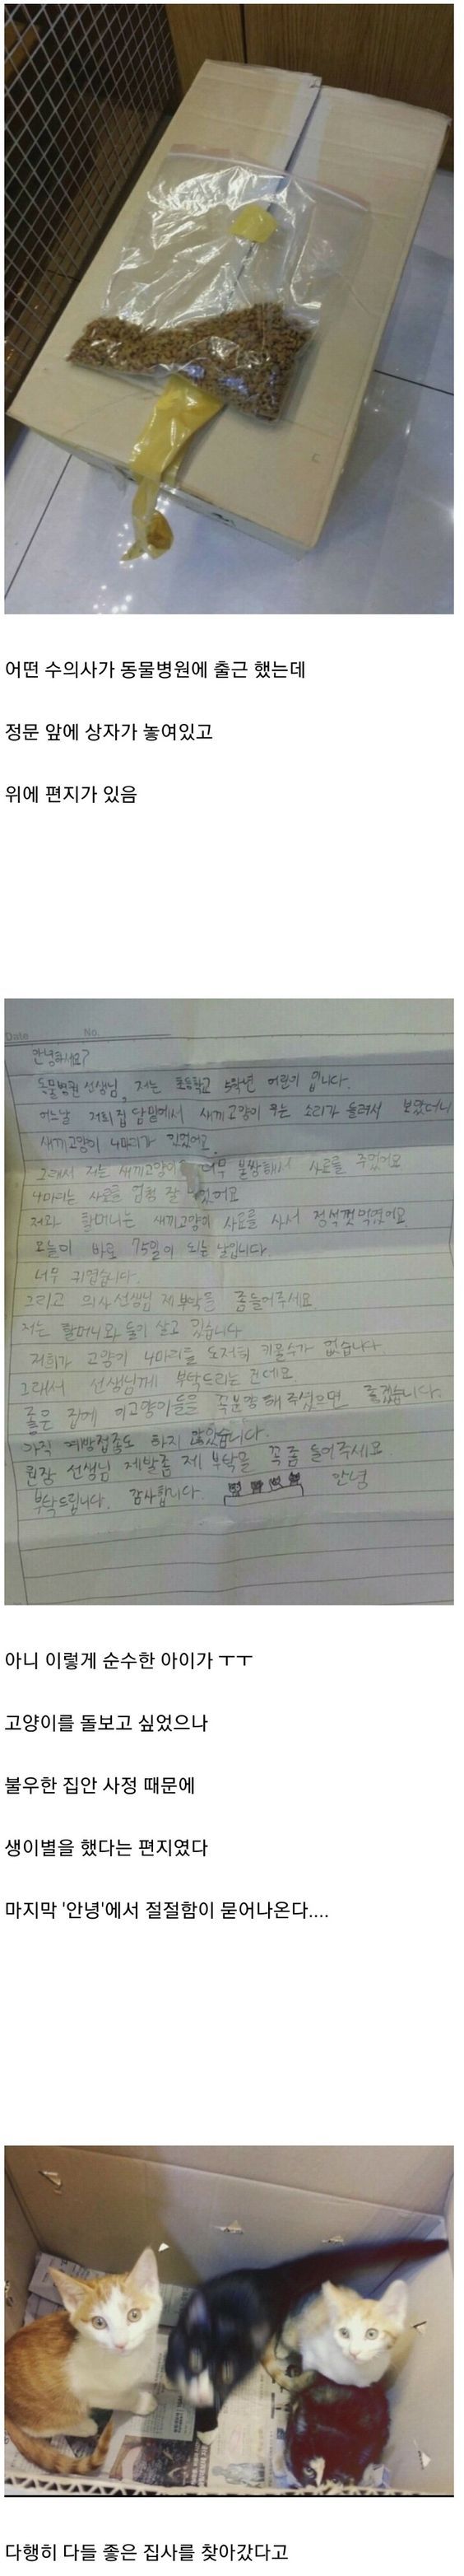 어떤 수의사가 동물병원에 출근 했는데
정문 앞에 상자가 놓여있고
위에 편지가 있음
Date No.
안녕하세요?
동물병원 선생님, 저는 초등학교 5학년 어린이 입니다.
어느날 저희집 담밑에서 새끼고양이 우는 소리가 들려서 보았더니
새끼고양이 4마리가 있었어요.
그래서 저는 새끼고양이 너무 불쌍해서 사료를 주었어요
4마리는 사료를 엄청 잘 먹었어요
저와 할머니는 새끼고양이 사료를 사서 정성껏먹였어요
오늘이 바로 75일이 되는 날입니다.
너무 귀엽습니다.
그리고 의사선생님 제부탁을 좀들어주세요
저는 할머니와 둘이 살고 있습니다
저희가 고양이 4마리를 도저히 키울수가 없습니다
그래서 선생님께 부탁드리는 건데요
좋은 집에 이고양이들을 꼭분양해주셨으면 좋겠습니다.
아직 예방접종도 하지 않았습니다.
원장 선생님 제발좀 제 부탁을 꼭좀 들어주세요
부탁드립니다. 감사합니다. 안녕
아니 이렇게 순수한 아이가 ㅜㅜ
고양이를 돌보고 싶었으나
불우한 집안 사정 때문에
생이별을 했다는 편지였다
마지막 '안녕'에서 절절함이 묻어나온다....
다행히 다들 좋은 집사를 찾아갔다고